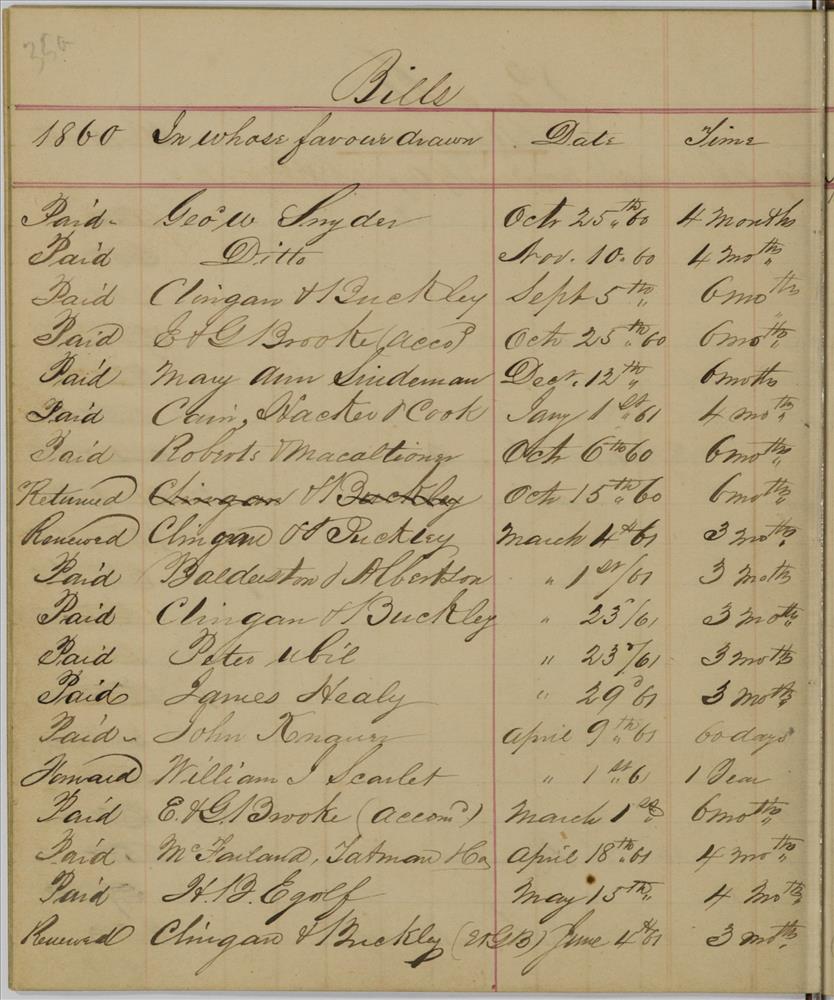 Bills
1860 In whose favour drawn Date Time
Paid Geo. W Snyder Octr 25th 60 4 months
Paid Ditto Nov. 10. 60 4 moths
Paid Clingan & Buckley Sept 5th 6 moths
Paid E & G Brooke (acco) Octr 25th 60 6 moths
Paid Mary Ann Lindeman Decr. 12th 6 moths
Paid Cain, Hacker & Cook Jany 1st 61 4 moths
Paid Roberts & Macaltioner Octr 6th 60 6 moths
Returned Clingan & Buckley Octr 15th 60 6 moths
Renewed Clingan & Buckley March 4th 61 3 moths
Paid Balderston & Albertson " 1st/61 3 moths
Paid Clingan & Buckley " 23d/61 3 moths
Paid Peter Ubil " 23d/61 3 moths
Paid James Healy " 29d 61 3 moths
Paid John Knauer April 9th 61 60 days
William J Scarlet " 1st 61 1 Year
Paid E. & G. Brooke (accomd) March 1st 6 moths
Paid McFarland, Tatman & Co April 18th 61 4 moths
Paid H. B. Egolf May 15th 4 Moths
Renewed Clingan & Buckley (E & G B) June 4th 61 3 moths